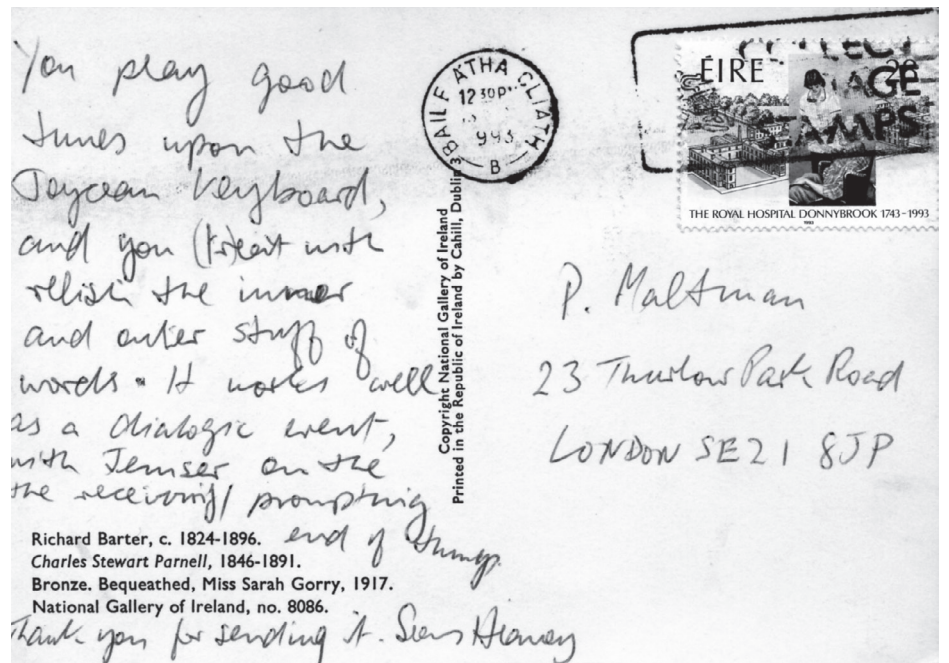 You play good
tunes upon the
Joycean keyboard,
and you (tr)eat with
relish the inner
and outer stuff of
words. It works well
as a dialogic event,
with Jemser on the
the receiving/prompting
end of things.
Richard Barter, c. 1824-1896.
Charles Stewart Parnell, 1846-1891.
Bronze. Bequeathed, Miss Sarah Gorry, 1917.
National Gallery of Ireland, no. 8086.
Thank you for sending it. Seamus Heaney
Copyright National Gallery of Ireland
Printed in the Republic of Ireland by Cahill, Dublin 3
BAILE ÁTHA CLIATH
12 30 PM
993
B
AGE
AMPS
ÉIRE
THE ROYAL HOSPITAL DONNYBROOK 1743-1993
1993
P. Maltman
23 Thurlow Park Road
LONDON SE21 8JP